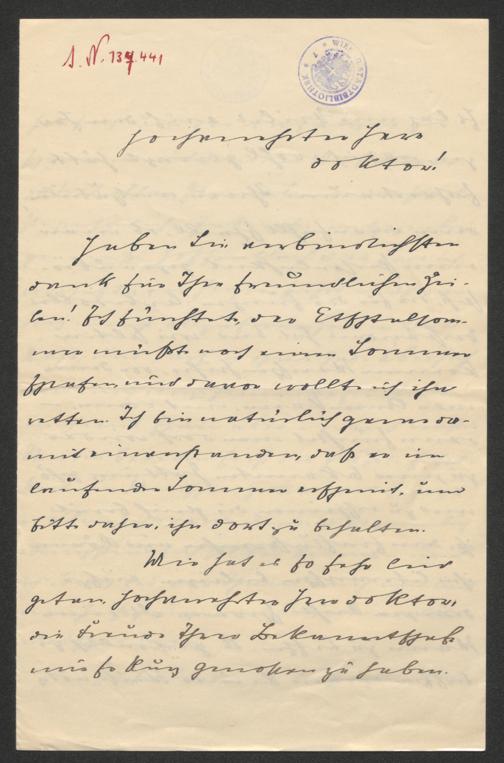 I. N. 137.441
WIENER STADTBIBLIOTHEK
Hochverehrter Herr
Doktor!
Haben Sie verbindlichsten
Dank für Ihre freundlichen Zei-
len! Ich fürchtete, der
müßte noch einen Sommer
schlafen und davor wollte ich ihn
retten. Ich bin natürlich gerne da-
mit einverstanden, daß er im
laufenden Sommer erscheint, und
bitte daher, ihn dort zu behalten.
Mir hat es so sehr leid
getan, hochverehrter Herr Doktor,
die Freude Ihrer Bekanntschaft
nur so kurz genossen zu haben.